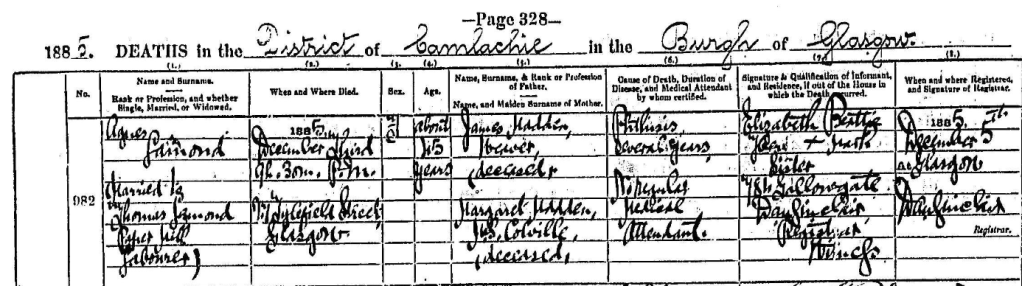 —Page 328—
1885. DEATHS in the District of Camlachie in the Burgh of Glasgow.
(1.) (2.) (3.) (4.) (5.) (6.) (7.) (8.)
No.
Name and Surname.
Rank or Profession, and whether
Single, Married, or Widowed.
When and Where Died.
Sex.
Age.
Name, Surname, & Rank or Profession
of Father.
Name, and Maiden Surname of Mother.
Cause of Death, Duration of
Disease, and Medical Attendant
by whom certified.
Signature & Qualification of Informant,
and Residence, if out of the House in
which the Death occurred.
When and where Registered,
and Signature of Registrar.
982
Agnes
Lamond
Married to
Thomas Lamond
Paper Mill
Labourer)
1885,
December third
9h. 30m. P.M.
Street
Glasgow
F
about
years
James Madden,
deceased,
Margaret Madden,
M.S. Colville,
deceased,
Phthisis,
Several Years,
No regular
Medical
Attendant.
Elizabeth Beattie
her x mark
Sister
Gallowgate
Registrar
Witness
1885.
December 5th
at Glasgow
Registrar.